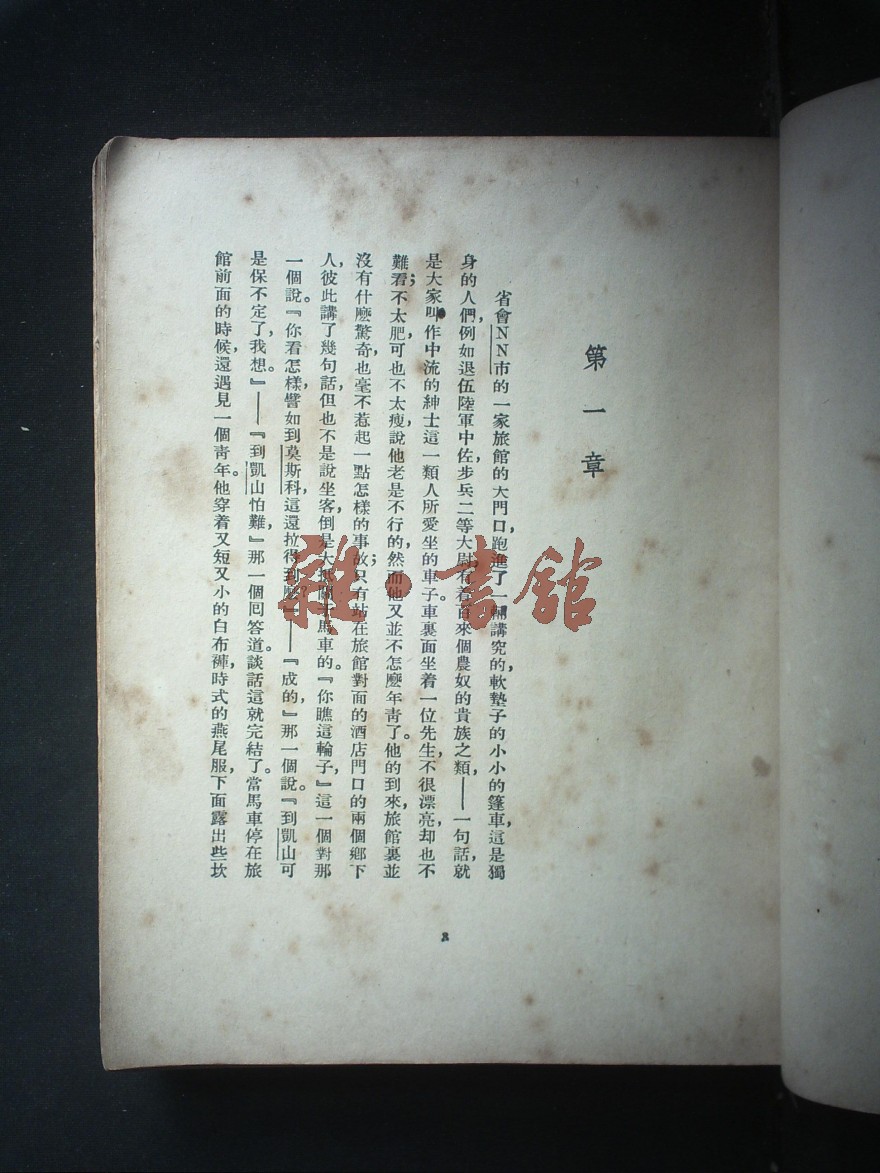 第一章
省會NN市的一家旅館的大門口,跑進了一輛講究的,軟墊子的小小的篷車,這是獨
身的人們,例如退伍陸軍中佐,步兵二等大尉,有着百來個農奴的貴族之類,——一句話,就
是大家叫作中流的紳士這一類人所愛坐的車子。車裏面坐着一位先生,不很漂亮,却也不
難看;不太肥,可也不太瘦,說他老是不行的,然而他又並不怎麽年靑了。他的到來,旅館裏並
沒有什麽驚奇,也毫不惹起一點怎樣的事故;只有站在旅館對面的酒店門口的兩個鄉下
人,彼此講了幾句話,但也不是說坐客,倒是大抵關于馬車的。『你瞧這輪子,』這一個對那
一個說。『你看怎樣,譬如到莫斯科,這還拉得到麽?』——『成的,』那一個說。『到凱山可
是保不定了,我想。』——『到凱山怕難,』那一個囘答道。談話這就完結了。當馬車停在旅
館前面的時候,還遇見一個靑年。他穿着又短又小的白布褲,時式的燕尾服,下面露出些坎
3
雜·書館